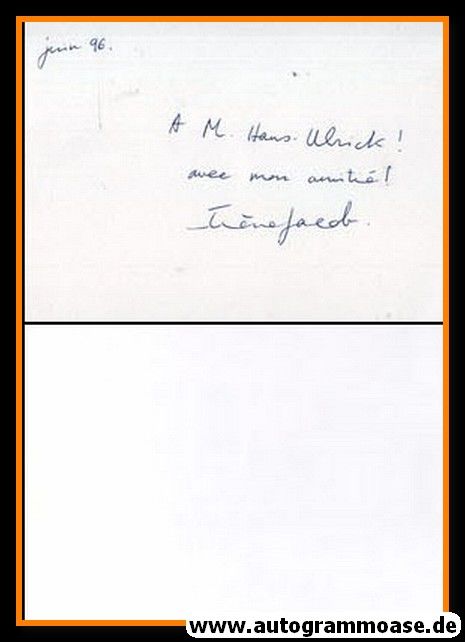 juin 96.
A M. Hans-Ulrick!
avec mon amitié!
Irène Jacob.
www.autogrammoase.de